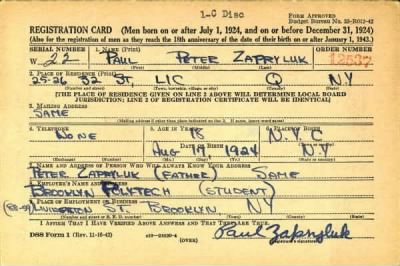 1-C Disc
FORM APPROVED
Budget Bureau No. 33-R012-42
REGISTRATION CARD (Men born on or after July 1, 1924, and on or before December 31, 1924)
(Also for the registration of men as they reach the 18th anniversary of the date of their birth on or after January 1, 1943.)
SERIAL NUMBER 1. NAME (Print) ORDER NUMBER
W 22 PAUL PETER ZAPRYLUK 12537
(First) (Middle) (Last)
2. PLACE OF RESIDENCE (Print)
25-26 32 ST. LIC Q NY
(Number and street) (Town, township, village, or city) (County) (State)
[THE PLACE OF RESIDENCE GIVEN ON LINE 2 ABOVE WILL DETERMINE LOCAL BOARD
JURISDICTION; LINE 2 OF REGISTRATION CERTIFICATE WILL BE IDENTICAL]
3. MAILING ADDRESS
SAME
(Mailing address if other than place indicated on line 2. If same, insert word same)
4. TELEPHONE 5. AGE IN YEARS 6. PLACE OF BIRTH
NONE 18 N.Y.C.
DATE OF BIRTH (Town or county)
AUG 19 1924 N.Y.
(Exchange) (Number) (Mo.) (Day) (Yr.) (State or country)
7. NAME AND ADDRESS OF PERSON WHO WILL ALWAYS KNOW YOUR ADDRESS
PETER ZAPRYLUK (FATHER) SAME
8. EMPLOYER'S NAME AND ADDRESS
BROOKLYN POLYTECH (STUDENT)
9. PLACE OF EMPLOYMENT OR BUSINESS
LIVINGSTON ST. BROOKLYN NY
(Number and street or R. F. D. number) (Town) (County) (State)
I AFFIRM THAT I HAVE VERIFIED ABOVE ANSWERS AND THAT THEY ARE TRUE.
DSS Form 1 (Rev. 11-16-42) (OVER) Paul Zapryluk